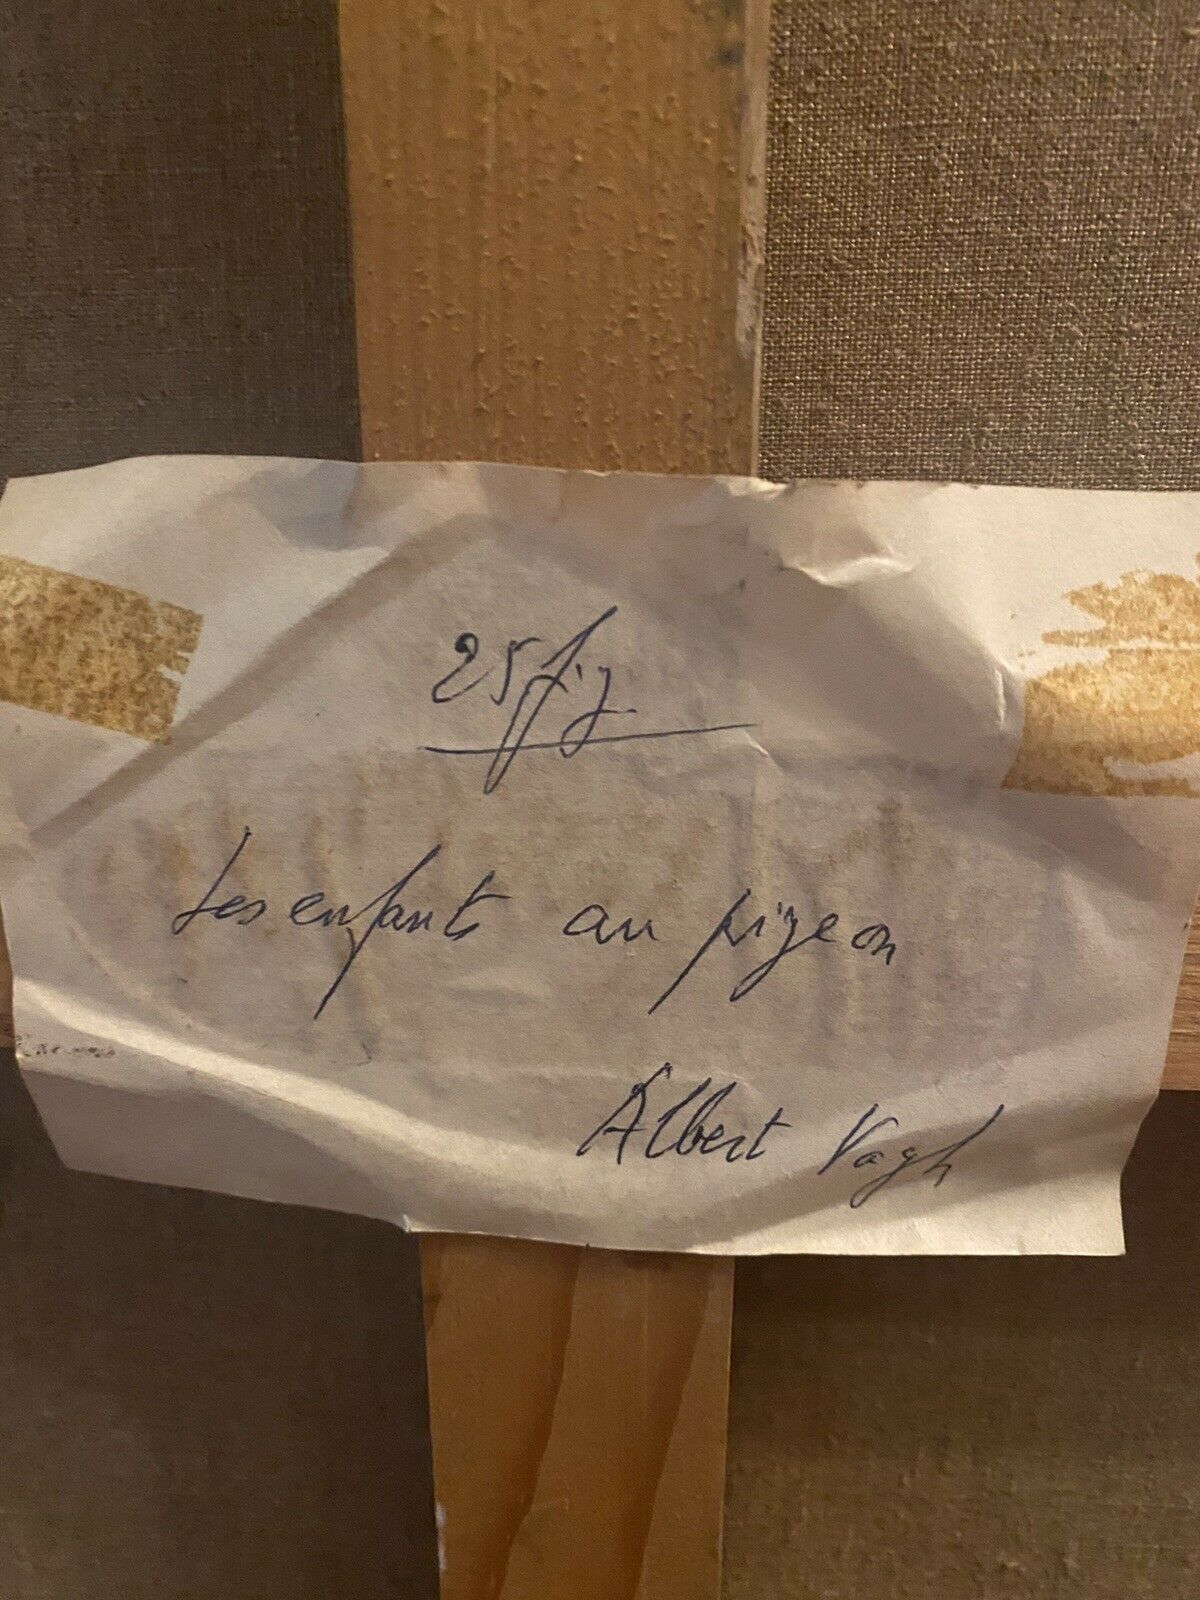 25 fig.
Les enfants au pigeon
Albert Vagh